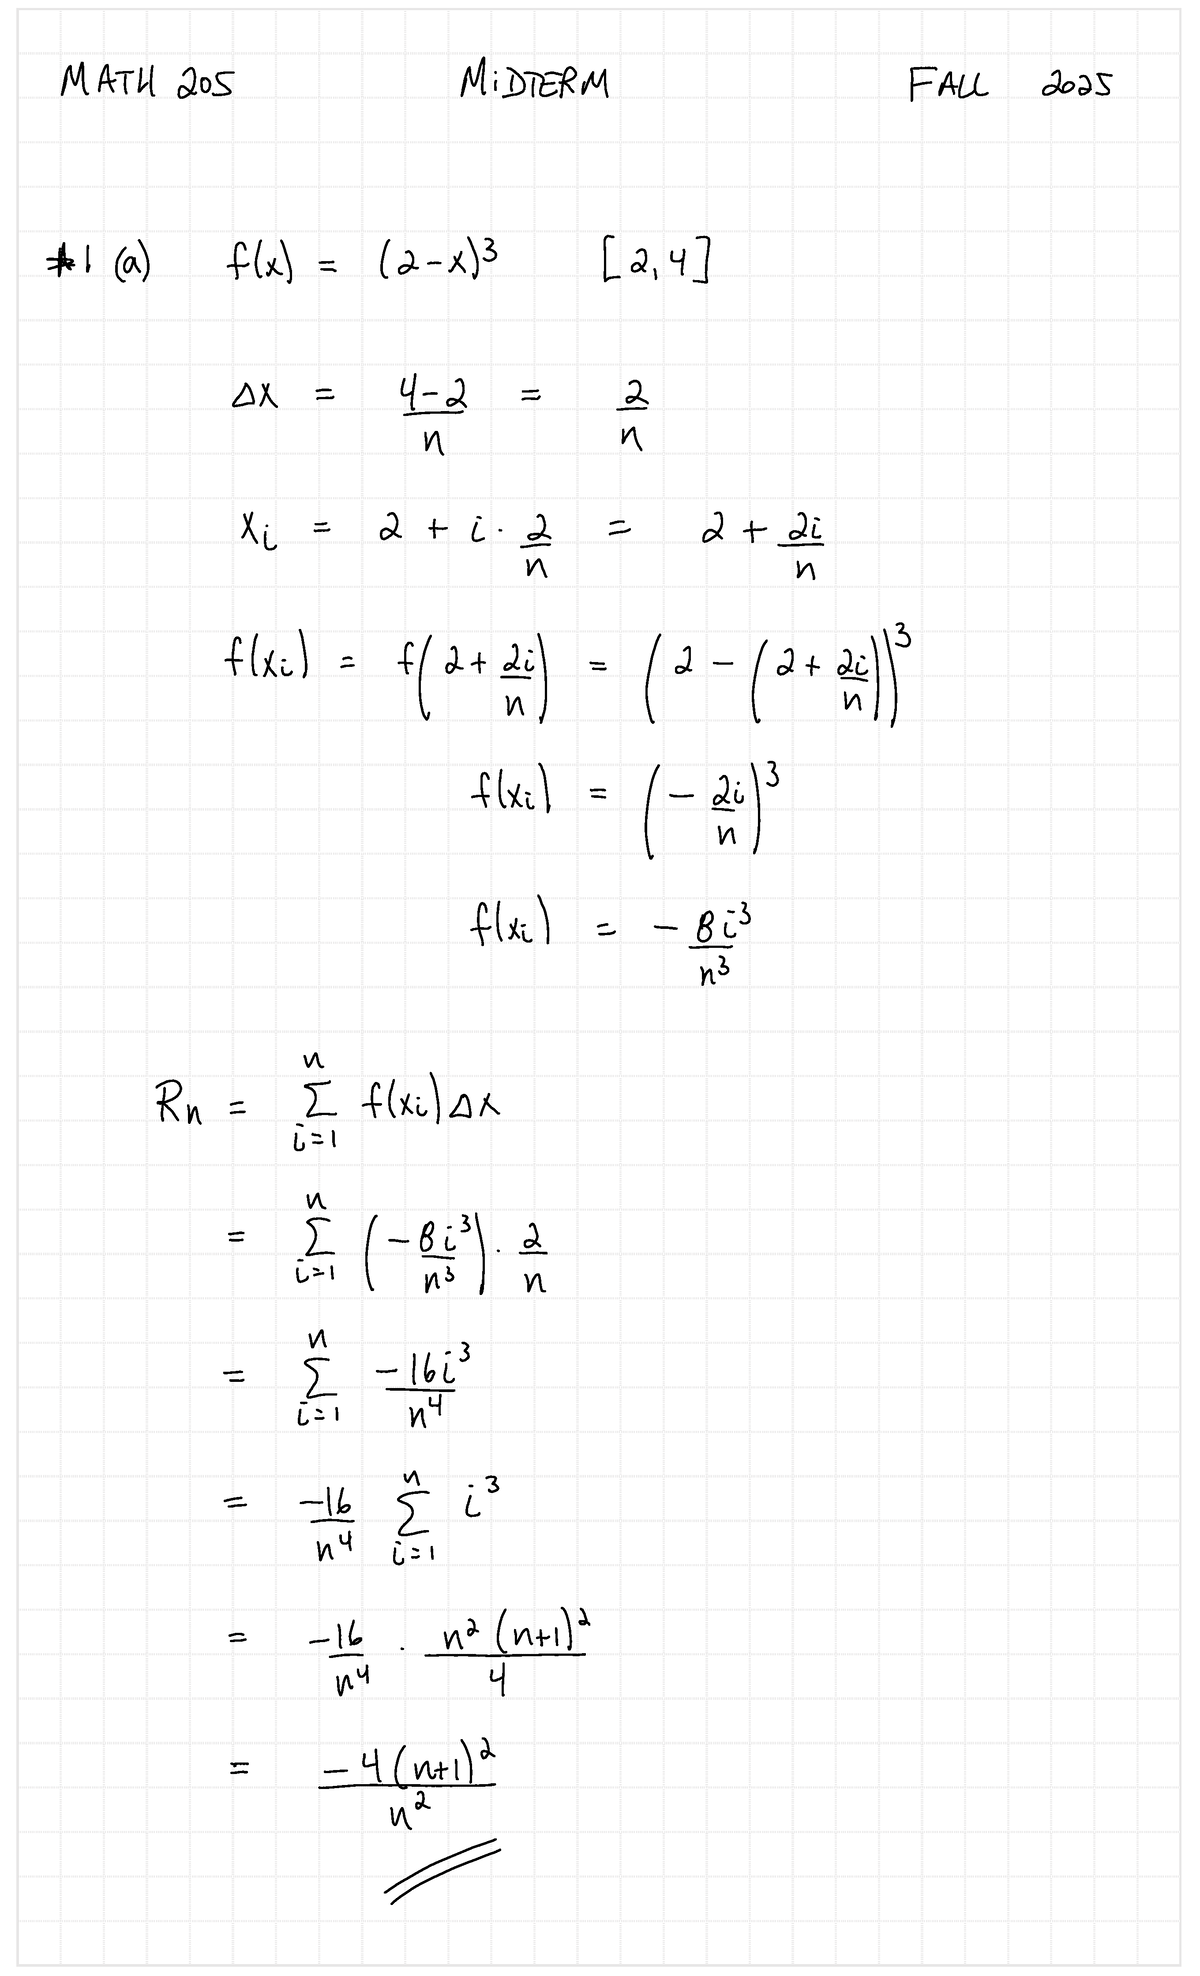 MATH 205 MiDTERM FALL 2025
#1 (a) f(x) = (2-x)³ [2,4]
Δx = (4-2)/n = 2/n
xᵢ = 2 + i · 2/n = 2 + 2i/n
f(xᵢ) = f(2 + 2i/n) = (2 - (2 + 2i/n))³
f(xᵢ) = (- 2i/n)³
f(xᵢ) = - 8i³/n³
Rₙ = Σ_{i=1}^{n} f(xᵢ) Δx
= Σ_{i=1}^{n} (- 8i³/n³) · 2/n
= Σ_{i=1}^{n} -16i³/n⁴
= -16/n⁴ Σ_{i=1}^{n} i³
= -16/n⁴ · n²(n+1)²/4
= -4(n+1)²/n²